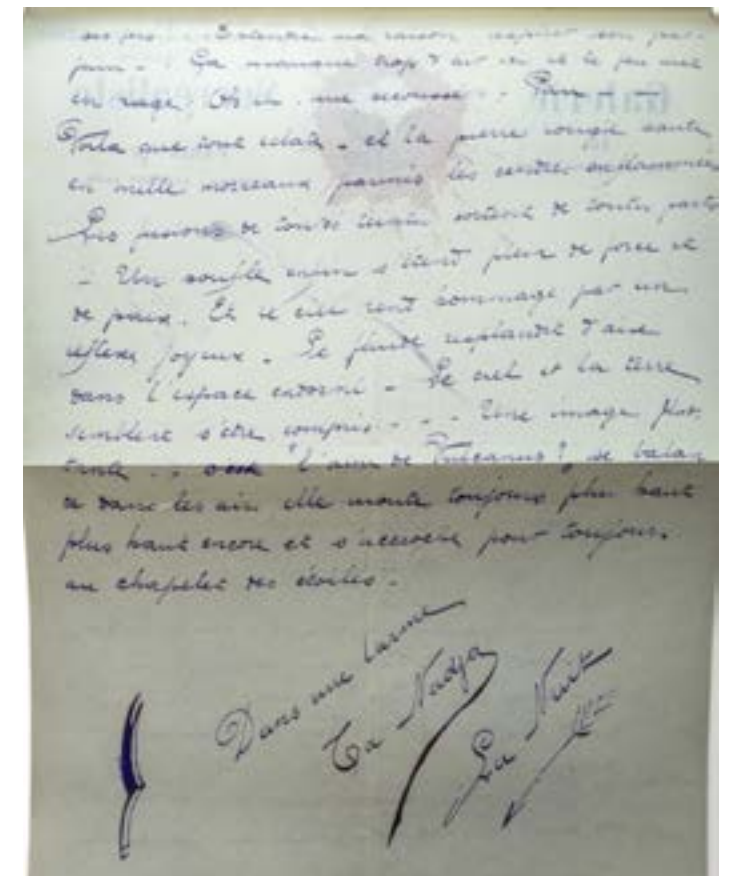 Entendre ma raison
Ça manque trop d'air ici et le feu met
en rage. Oh là. une secousse. - Pan - -
Voilà que tout éclate - et la pierre rouge saute
en mille morceaux parmis les cendres enflammées
Les de toutes sortent de toutes parts
- Un souffle enfin s'étend plein de force et
de paix. Et le ciel rend hommage par un
reflexe joyeux. Le fluide resplandit d'aise
dans l'espace - Le ciel et la terre
semblent s'être compris - - - Une image flot-
tante - - l'âme de Vulcanus! se balan
ce dans les airs elle monte toujours plus haut
plus haut encore et s'accroche pour toujours
au chapelet des étoiles -
Dans une larme
Ta Nadja
La Nuit